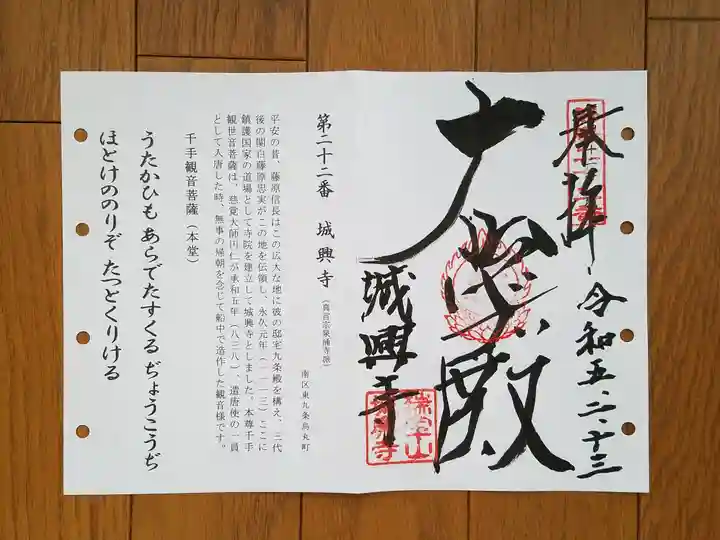 奉拝
令和五・二・十三
大悲殿
城興寺
瑞寶山
城興寺
第二十二番 城興寺(真言宗泉涌寺派)
南区東九条烏丸町
平安の昔、藤原信長はこの広大な地に彼の邸宅九条殿を構え、三代
後の関白藤原忠実がこの地を伝領し、永久元年(一一一三)ここに
鎮護国家の道場として寺院を建立して城興寺としました。本尊千手
観世音菩薩は、慈覚大師円仁が承和五年(八三八)、遣唐使の一員
として入唐した時、無事の帰朝を念じて船中で造作した観音様です。
千手観音菩薩(本堂)
うたかひも あらでたすくる ぢょうこうぢ
ほとけののりぞ たつとくりける